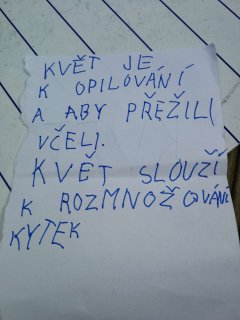 KVĚT JE
K OPILOVÁNÍ
A ABY PŘĚŽILI
VČELI.
KVĚT SLOUŽÍ
K ROZMNOŽOVÁNÍ
KYTEK